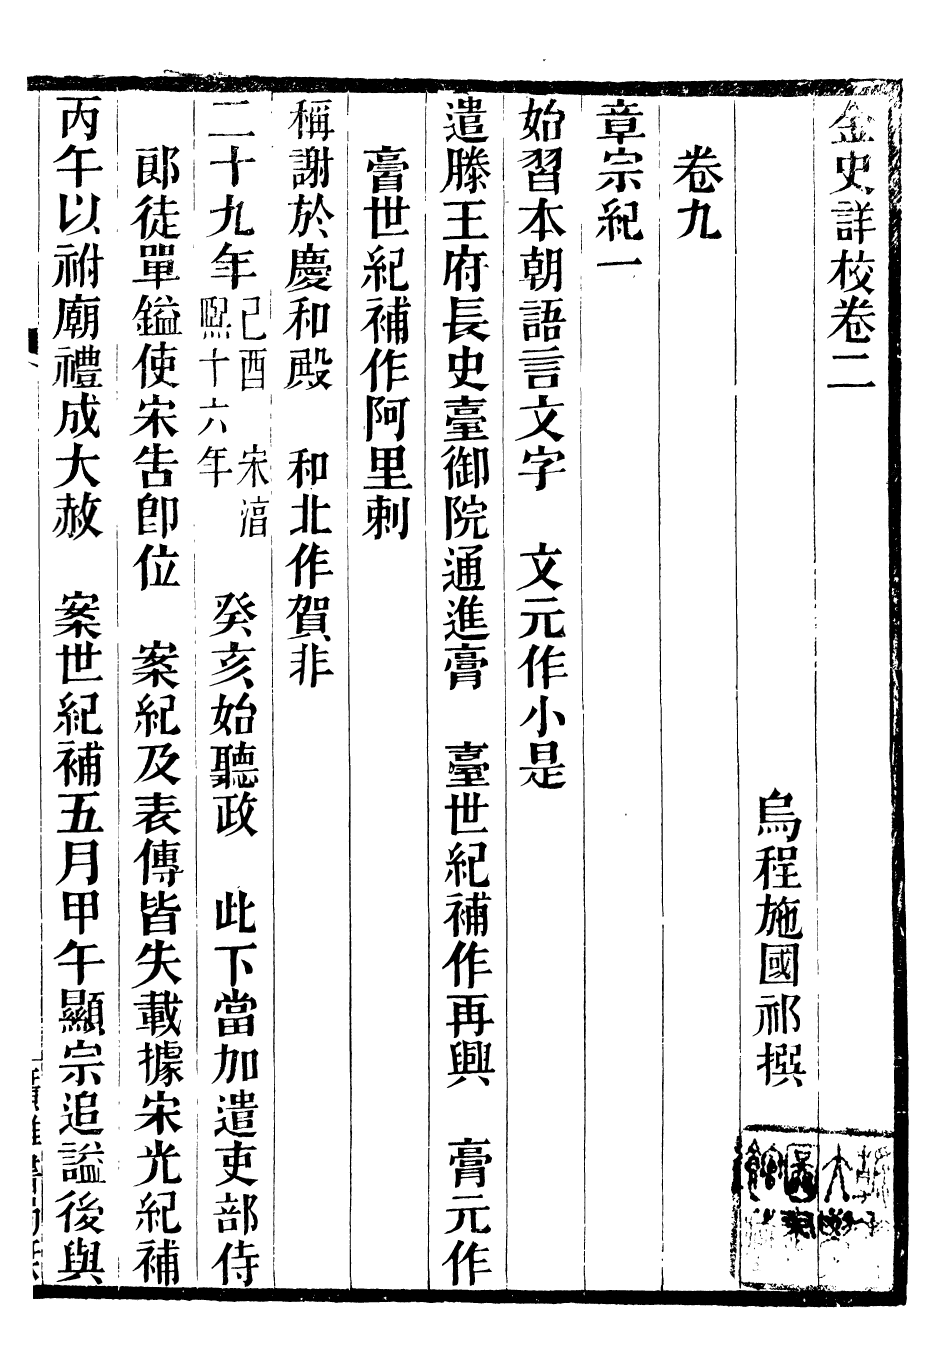 金史詳校卷二
烏程施國祁撰
卷九
章宗紀一
始習本朝語言文字　文元作小是
遣滕王府長史臺御院通進膏　臺世紀補作再興　膏元作
膏世紀補作阿里剌
稱謝於慶和殿　和北作賀非
二十九年己酉　宋淳熙十六年　癸亥始聽政　此下當加遣吏部侍
郎徒單鎰使宋告卽位　案紀及表傳皆失載據宋光紀補
丙午以祔廟禮成大赦　案世紀補五月甲午顯宗追謚後與